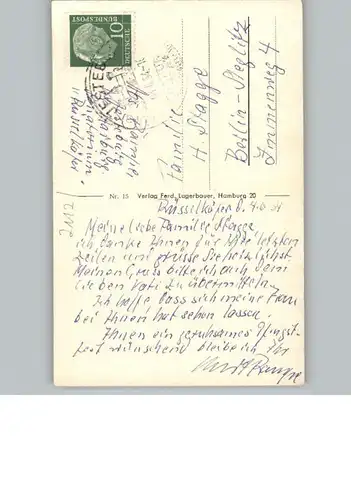 DEUTSCHE
BUNDESPOST
10
Familie
H. Stagge
Berlin-Steglitz
Immenweg 4
Nr. 15 Verlag Ferd. Lagerbauer, Hamburg 20
4.6.54
Meine liebe Familie Stagge,
ich danke Ihnen für Ihre letzten
Zeilen und grüsse Sie herzlichst.
Meinen Gruss bitte ich auch dem
lieben Vati zu übermitteln.
Ich hoffe dass sich meine Frau
bei Ihnen hat sehen lassen.
Ihnen ein geruhsames Pfingst-
fest wünschend bleibe ich Ihr